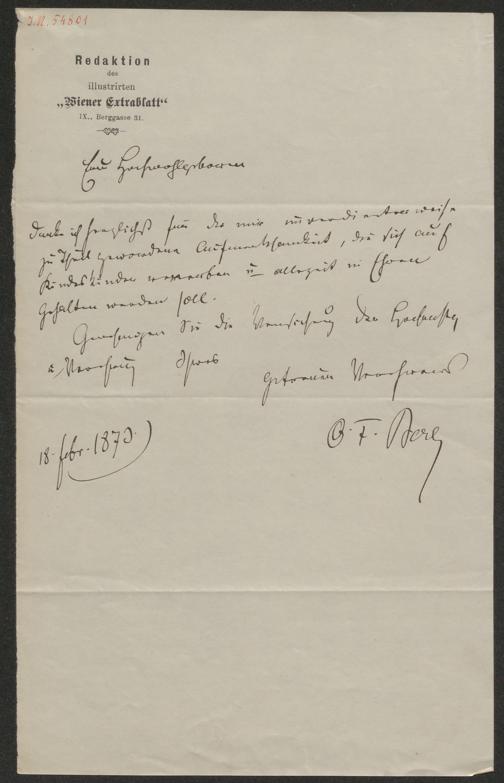 I.N. 54801
Redaktion
des
illustrirten
„Wiener Extrablatt“
IX., Berggasse 31.
Euer Hochwohlgeboren
danke ich herzlichst für die mir unverdienterweise
zu Theil gewordene Aufmerksamkeit, die sich auf
Kindeskinder vererben u allezeit in Ehren
gehalten werden soll.
Genehmigen Sie die Versicherung der
Verehrung Ihres
getreuen Verehrers
18. Febr. 1873.
O. F. Berg